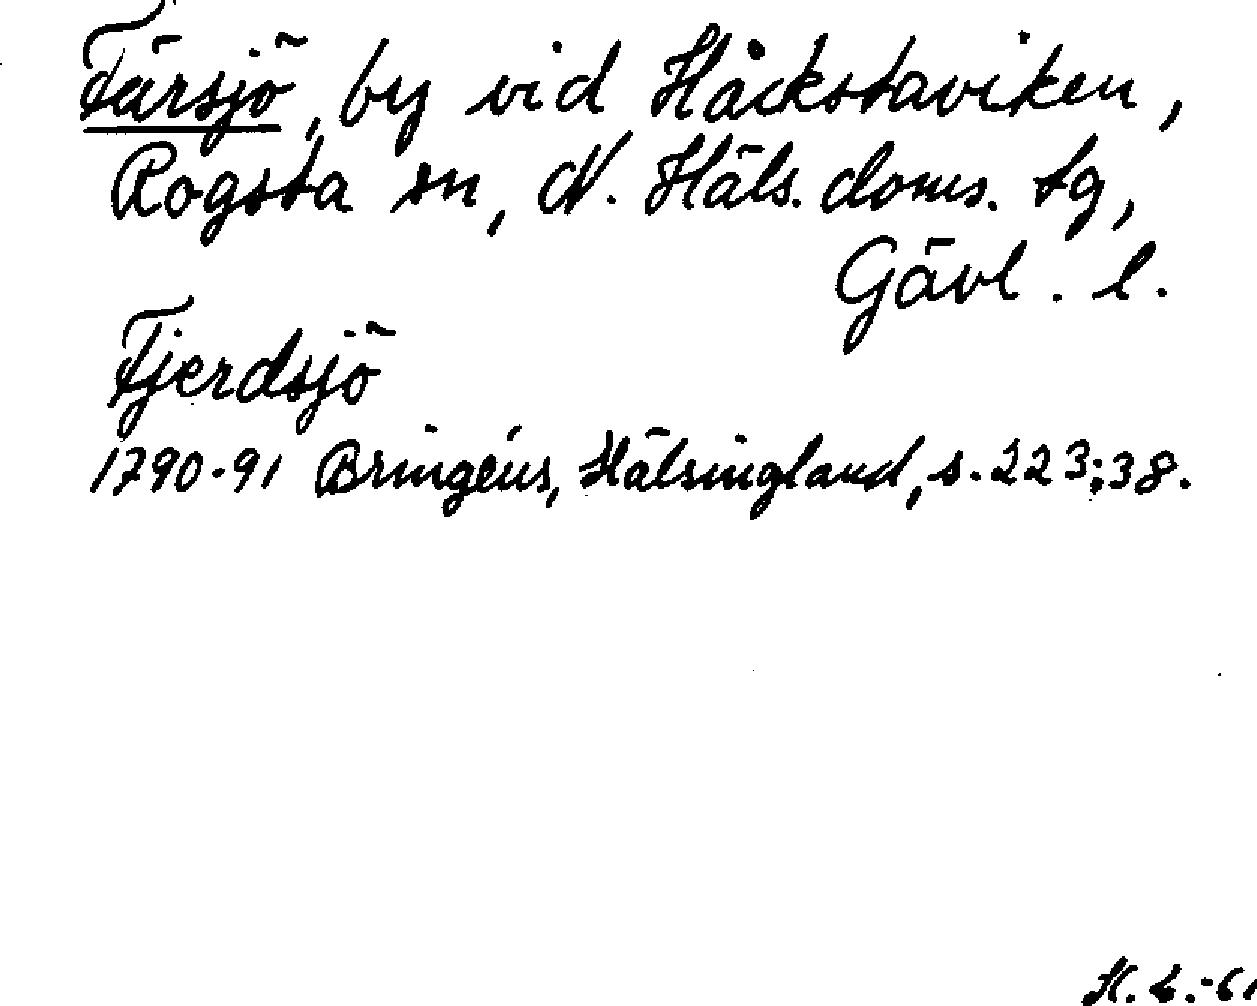 Färsjö, by vid Håckstaviken,
Rogsta sn, N. Häls. doms. tg,
Gävl. l.
Fjerdsjö
1790-91 Bringéus, Hälsingland, s. 223:38.